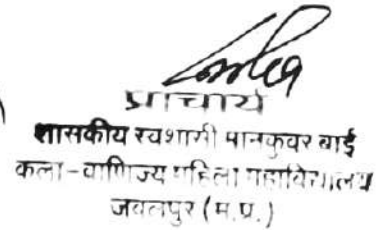 प्राचार्य
शासकीय स्वशासी मानकुवर बाई
कला-वाणिज्य महिला महाविद्यालय
जबलपुर (म.प्र.)